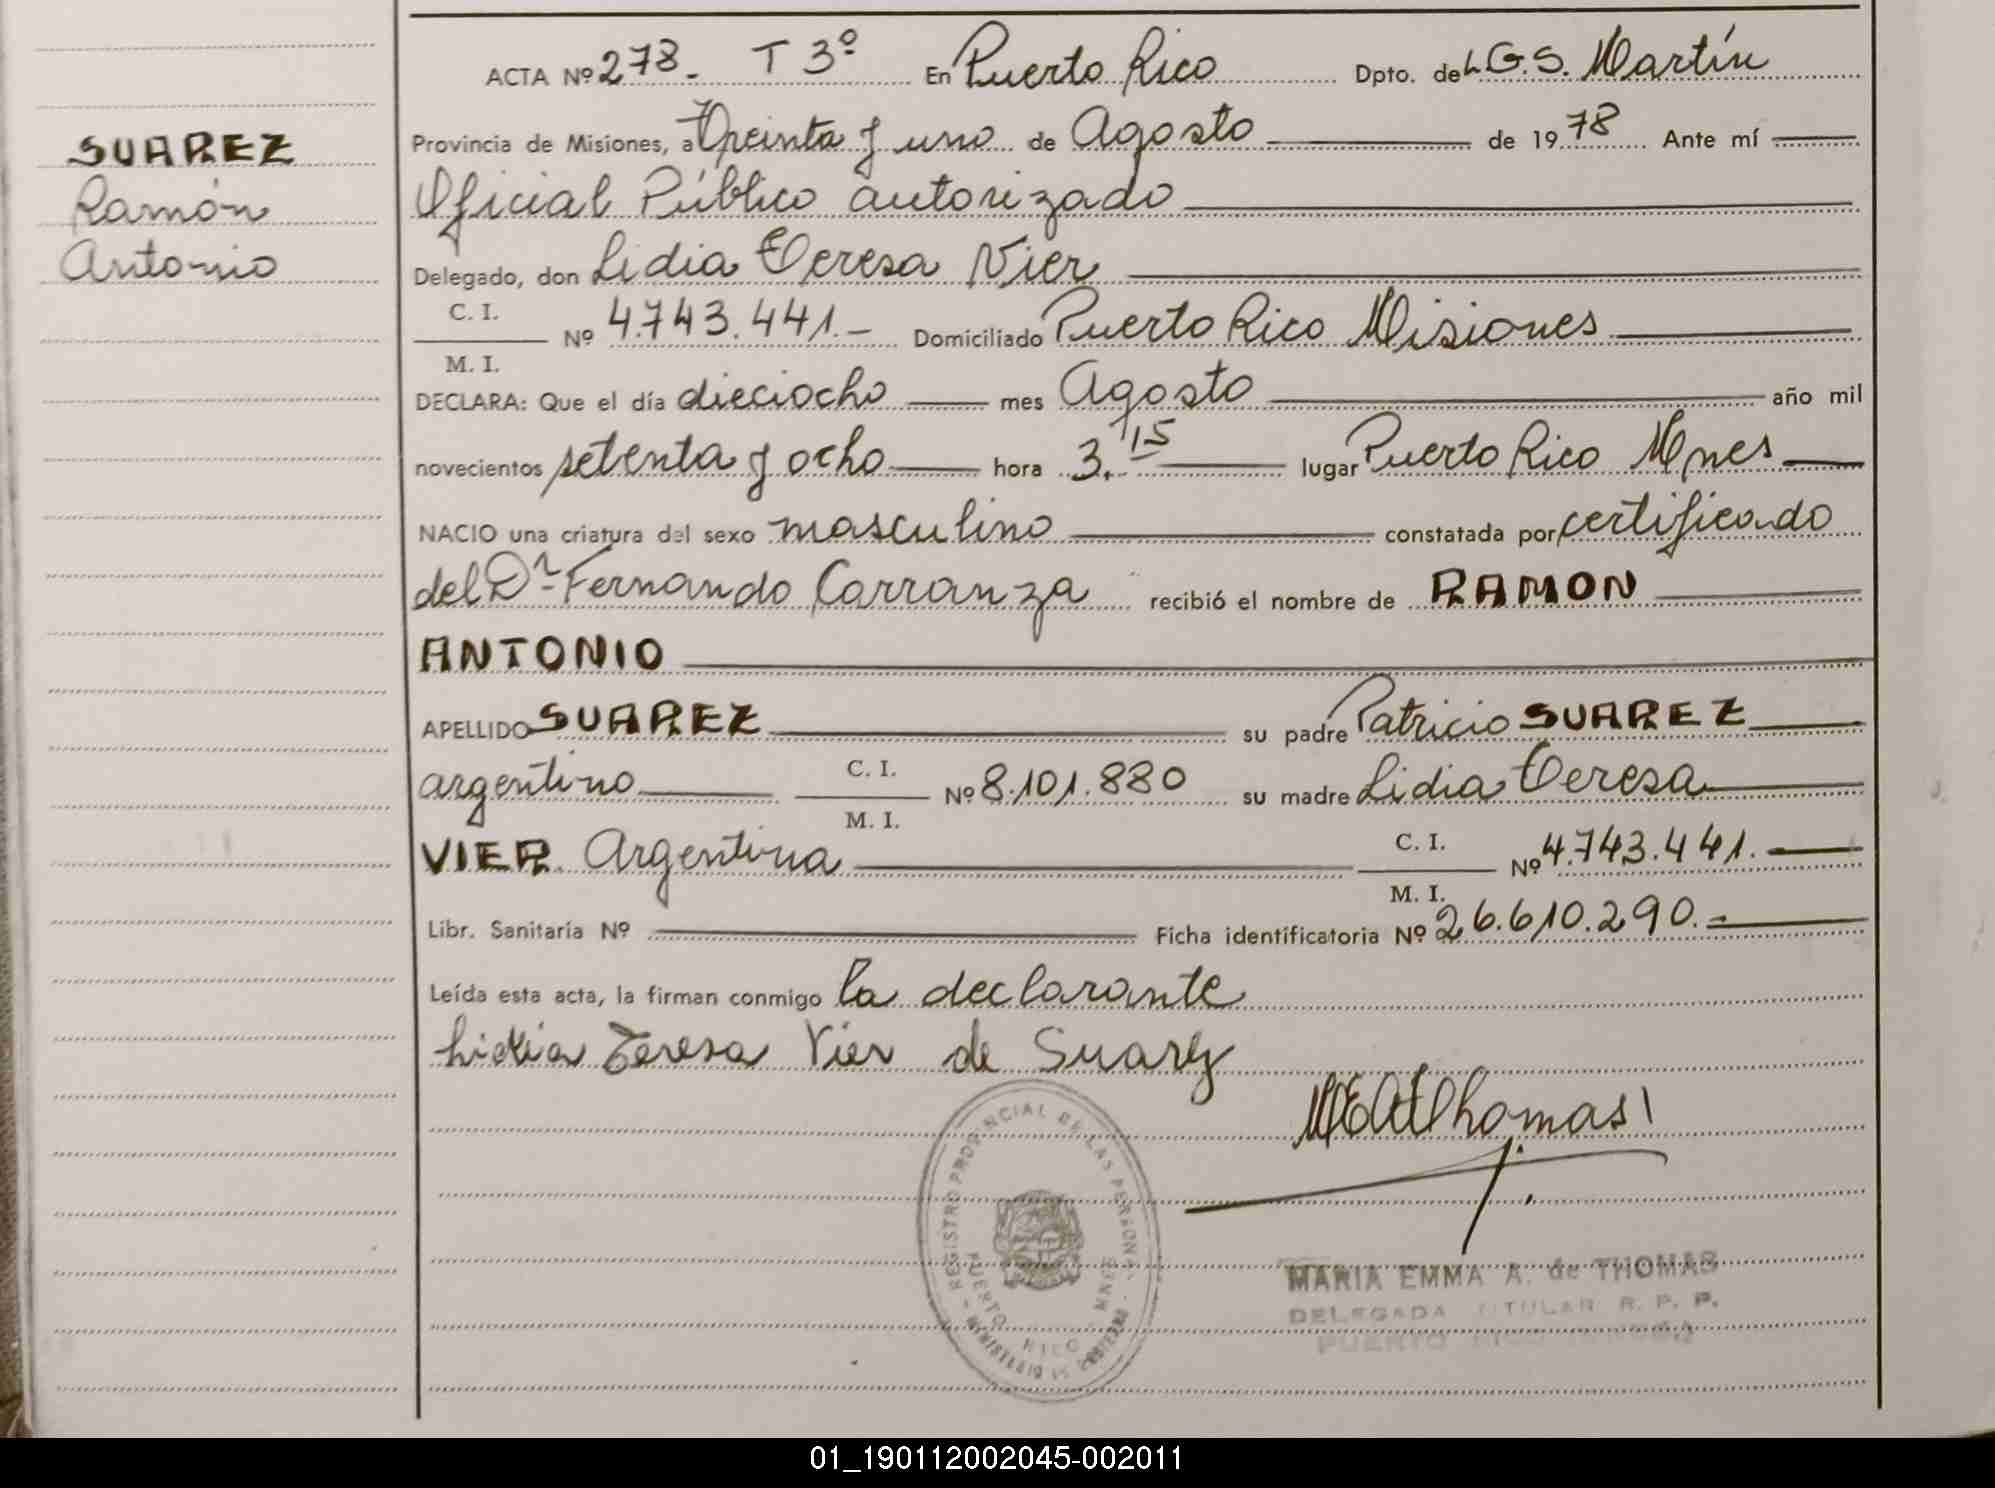 SUAREZ
Ramón
Antonio
ACTA Nº 278. T 3º En Puerto Rico Dpto. del L.G.S. Martín
Provincia de Misiones, a Treinta y uno de Agosto de 1978 Ante mí
Oficial Público autorizado
Delegado, don Lidia Teresa Vier
C. I.
Nº 4.743.441.- Domiciliado Puerto Rico Misiones
M. I.
DECLARA: Que el día dieciocho mes Agosto año mil
novecientos setenta y ocho hora 3.15 lugar Puerto Rico Mnes
NACIO una criatura del sexo masculino constatada por certificado
del Dr Fernando Carranza recibió el nombre de RAMON
ANTONIO
APELLIDO SUAREZ su padre Patricio SUAREZ
argentino C. I. Nº 8.101.880 su madre Lidia Teresa
M. I.
VIER. Argentina C. I. Nº 4.743.441.
M. I.
Libr. Sanitaria Nº Ficha identificatoria Nº 26.610.290.-
Leída esta acta, la firman conmigo la declarante
Lidia Teresa Vier de Suarez
MEAThomas
REGISTRO PROVINCIAL DE LAS PERSONAS - MINISTERIO DE GOBIERNO
PUERTO RICO MNES
MARIA EMMA A. de THOMAS
DELEGADA TITULAR R. P. P.
PUERTO RICO
01_190112002045-002011